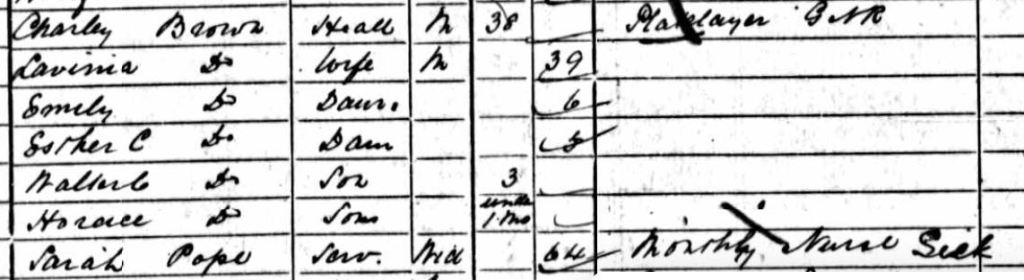 Charley Brown Head M 38 Platelayer GNR
Lavinia Do Wife M 39
Emily Do Daur. 6
Esther C Do Daur 5
Walter C Do Son 3
Horace Do Son under 1 Mo
Sarah Pope Serv. Wid 64 Monthly Nurse Sick